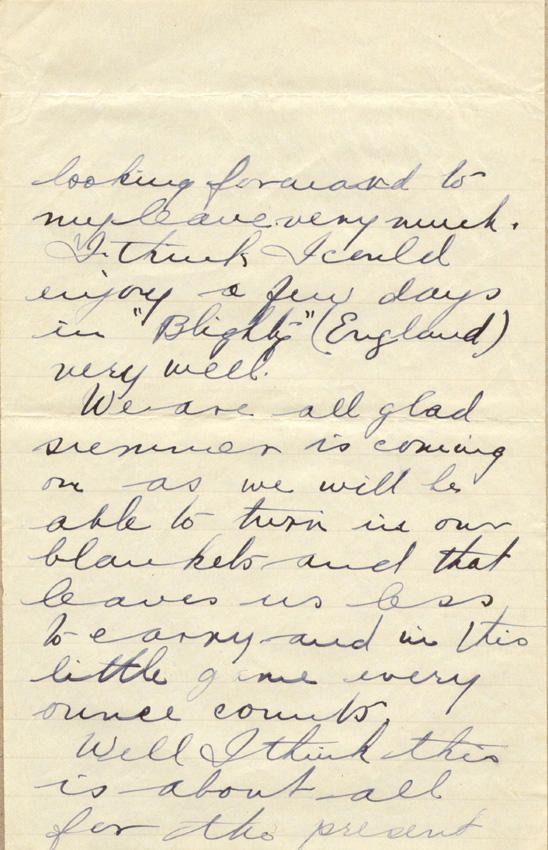 looking forward to
my leave very much.
I think I could
enjoy a few days
in "Blighty" (England)
very well.
We are all glad
summer is coming
on as we will be
able to turn in our
blankets and that
leaves us less
to carry and in this
little game every
ounce counts.
Well I think this
is about all
for the present